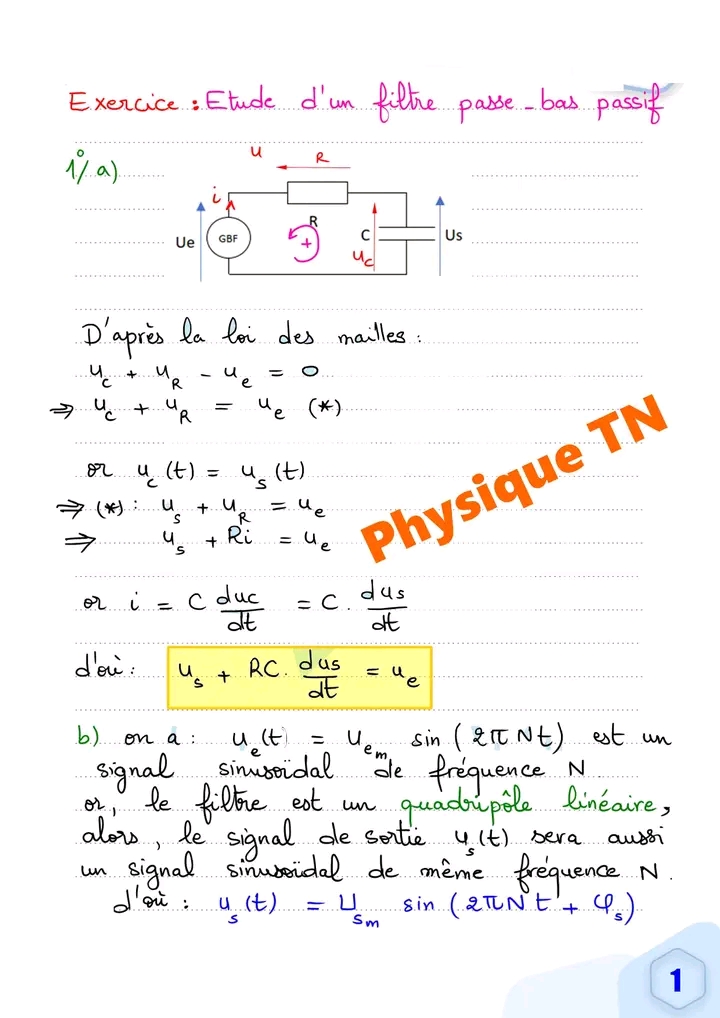 Exercice : Etude d'un filtre passe-bas passif
1°/ a)
u R
i
R
Ue GBF + C Us
u_c
D'après la loi des mailles :
u_c + u_R - u_e = 0
⇒ u_c + u_R = u_e (*)
or u_c(t) = u_s(t)
⇒ (*) : u_s + u_R = u_e
⇒ u_s + Ri = u_e
Physique TN
or i = C duc/dt = C . dus/dt
d'où : u_s + RC . dus/dt = u_e
b) on a : u_e(t) = U_em sin (2πNt) est un
signal sinusoïdal de fréquence N
or, le filtre est un quadripôle linéaire,
alors, le signal de sortie u_s(t) sera aussi
un signal sinusoïdal de même fréquence N.
d'où : u_s(t) = U_sm sin (2πNt + φ_s)
1